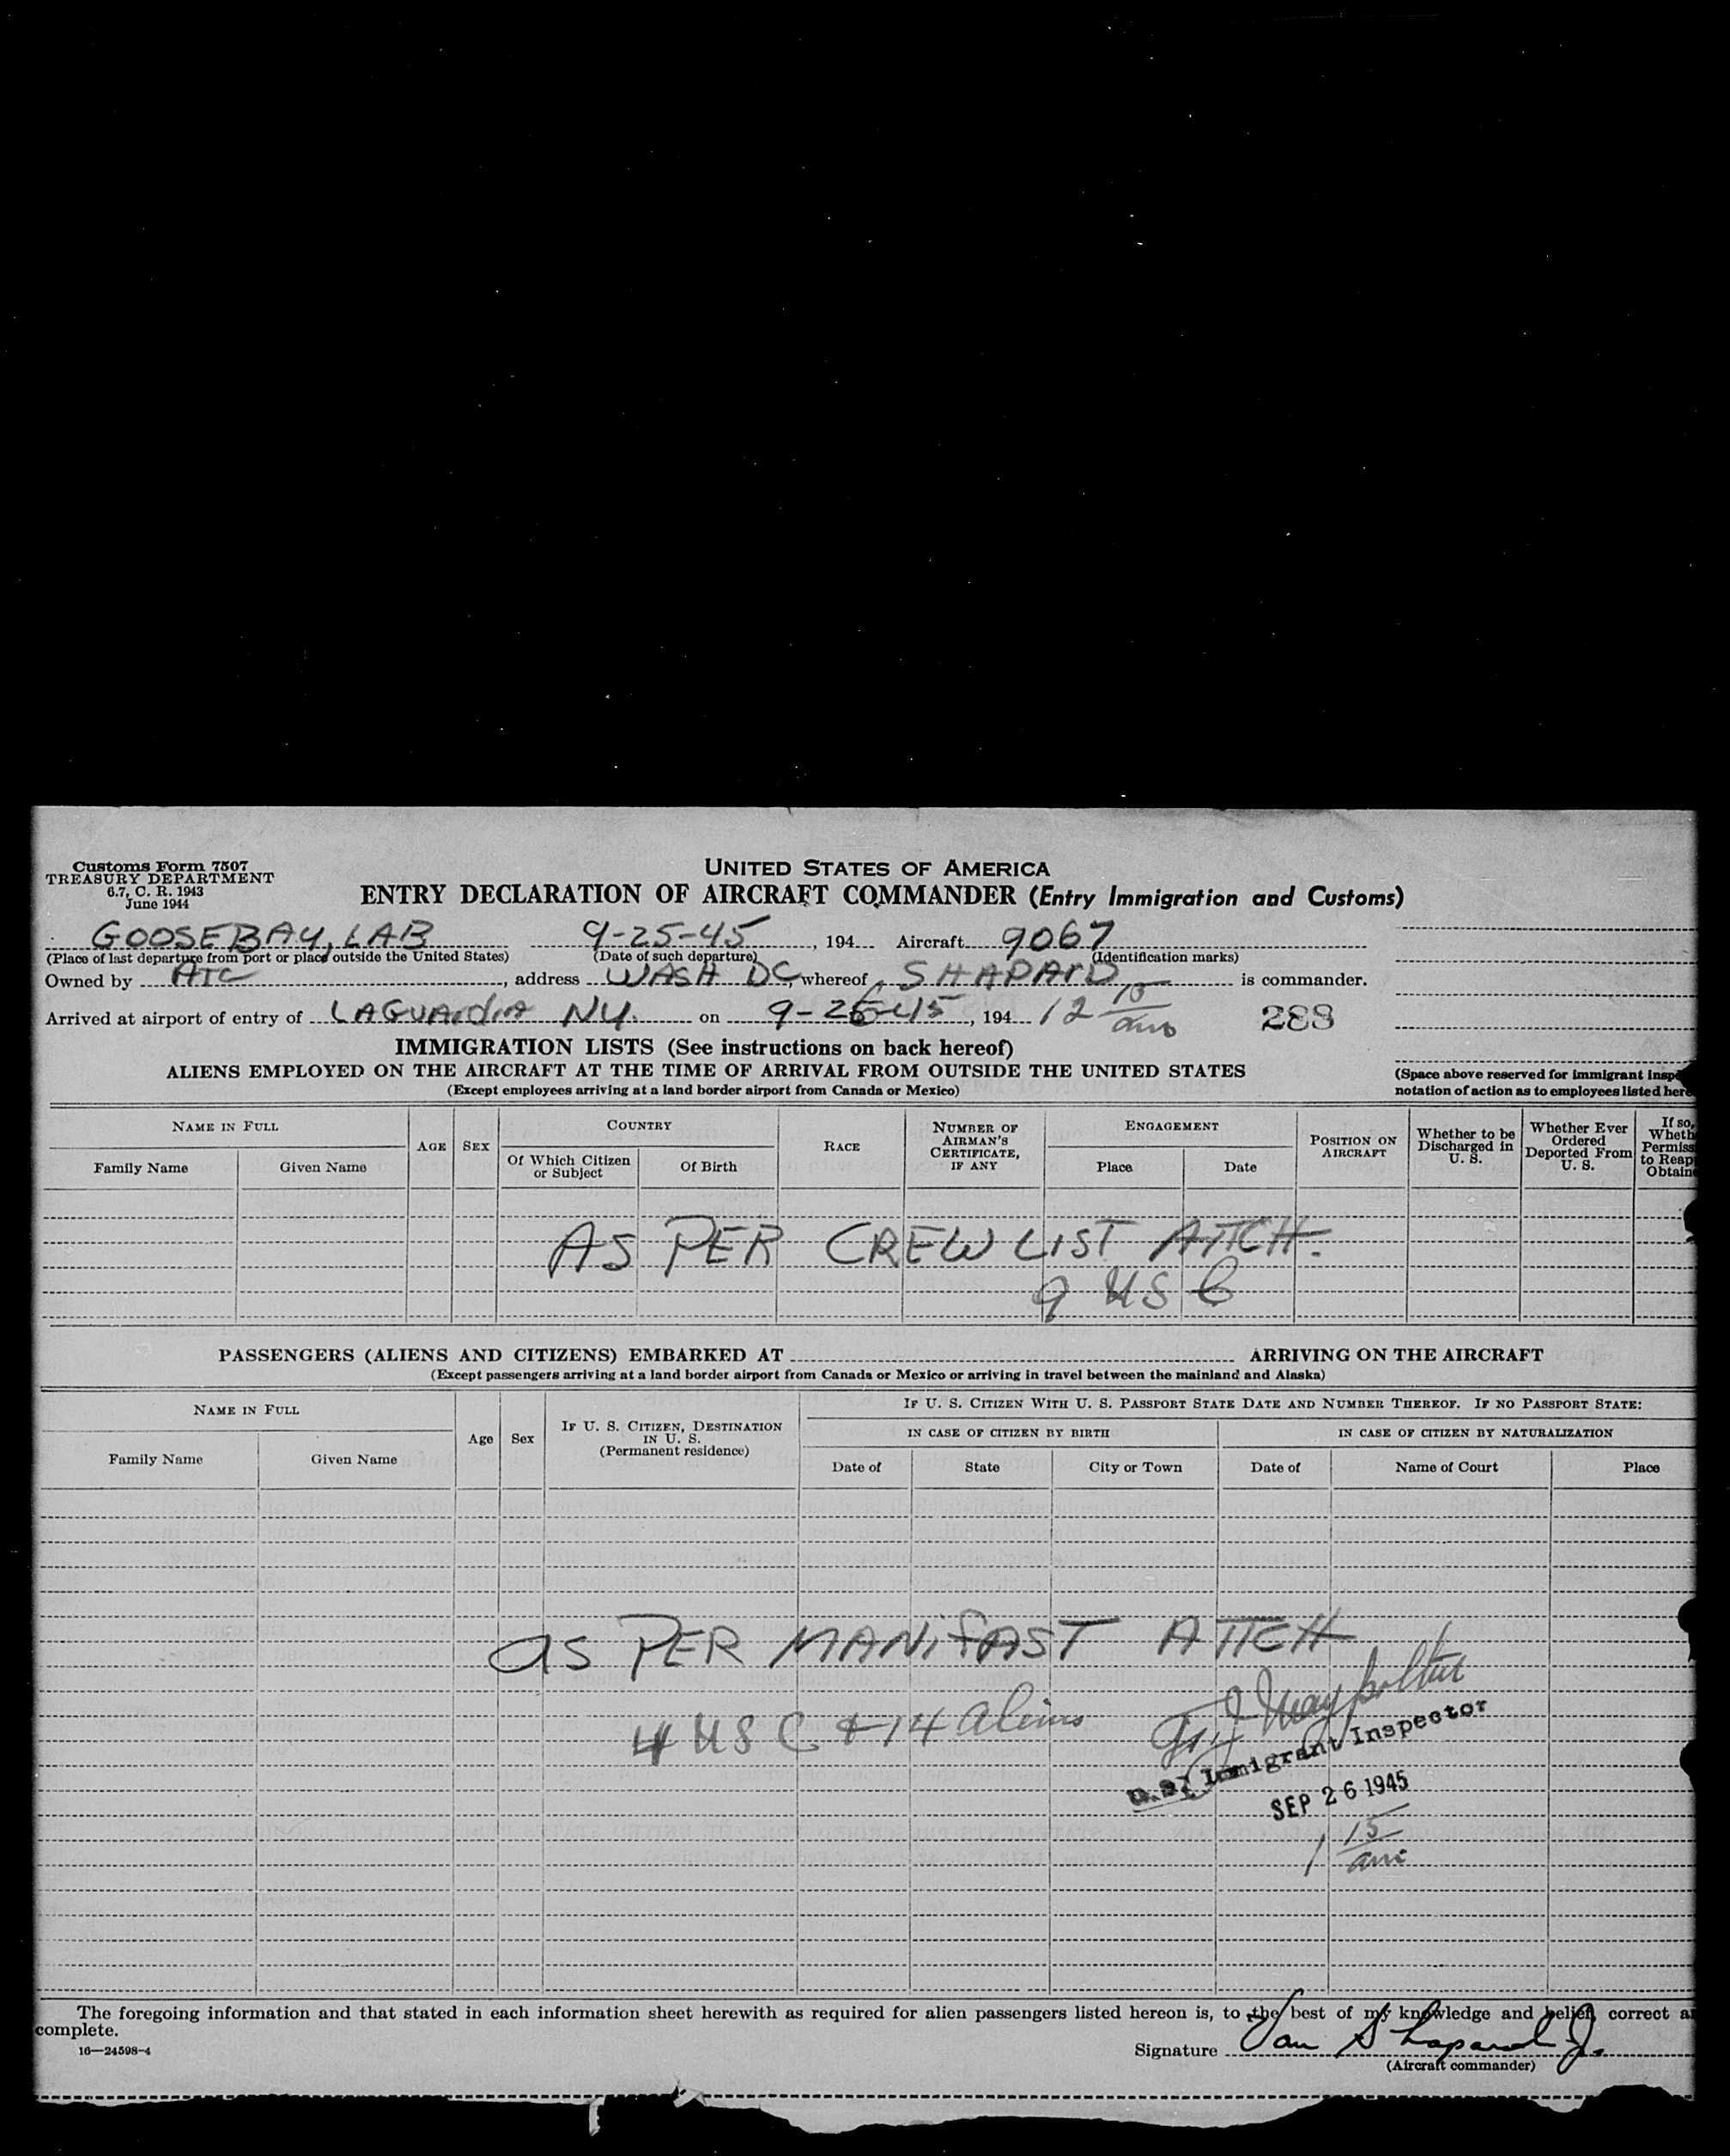 Customs Form 7507
TREASURY DEPARTMENT
6.7, C. R. 1943
June 1944
UNITED STATES OF AMERICA
ENTRY DECLARATION OF AIRCRAFT COMMANDER (Entry Immigration and Customs)
GOOSEBAY, LAB 9-25-45, 194 Aircraft 9067
(Place of last departure from port or place outside the United States) (Date of such departure) (Identification marks)
Owned by ATC, address WASH DC, whereof SHAPARD is commander.
Arrived at airport of entry of LAGUARDIA NY. on 9-26-45, 194 12 15 am 288
IMMIGRATION LISTS (See instructions on back hereof)
ALIENS EMPLOYED ON THE AIRCRAFT AT THE TIME OF ARRIVAL FROM OUTSIDE THE UNITED STATES
(Except employees arriving at a land border airport from Canada or Mexico)
(Space above reserved for immigrant insp
notation of action as to employees listed her
NAME IN FULL
Family Name Given Name
AGE SEX
COUNTRY
Of Which Citizen or Subject Of Birth
RACE
NUMBER OF AIRMAN'S CERTIFICATE, IF ANY
ENGAGEMENT
Place Date
POSITION ON AIRCRAFT
Whether to be Discharged in U. S.
Whether Ever Ordered Deported From U. S.
If so, Wheth Permiss to Reap Obtain
AS PER CREW LIST ATTCH.
9 USC
PASSENGERS (ALIENS AND CITIZENS) EMBARKED AT ARRIVING ON THE AIRCRAFT
(Except passengers arriving at a land border airport from Canada or Mexico or arriving in travel between the mainland and Alaska)
NAME IN FULL
Family Name Given Name
Age Sex
IF U. S. CITIZEN, DESTINATION IN U. S.
(Permanent residence)
IF U. S. CITIZEN WITH U. S. PASSPORT STATE DATE AND NUMBER THEREOF. IF NO PASSPORT STATE:
IN CASE OF CITIZEN BY BIRTH IN CASE OF CITIZEN BY NATURALIZATION
Date of State City or Town Date of Name of Court Place
AS PER MANIFAST ATTCH
4 USC + 14 aliens
U.S. Immigrant Inspector
SEP 26 1945
1 15 am
The foregoing information and that stated in each information sheet herewith as required for alien passengers listed hereon is, to the best of my knowledge and belief, correct a
complete.
16—24598-4
Signature Van Shapard Jr.
(Aircraft commander)